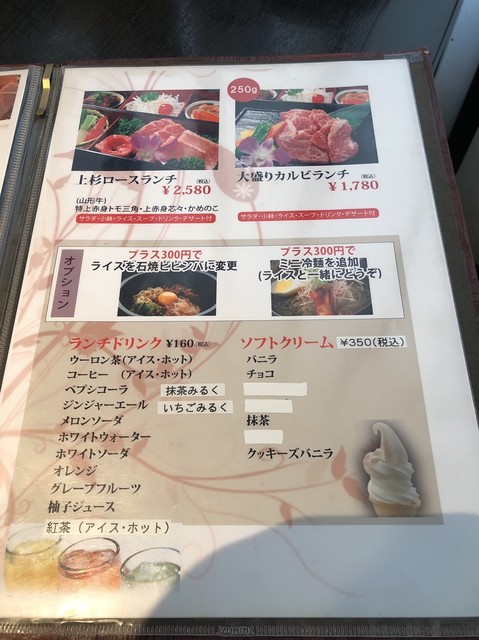 250g
上杉ロースランチ (税込)
¥2,580
(山形牛)
特上赤身トモ三角・上赤身芯々・かめのこ
サラダ・小鉢・ライス・スープ・ドリンク・デザート付
大盛りカルビランチ (税込)
¥1,780
サラダ・小鉢・ライス・スープ・ドリンク・デザート付
オプション
プラス300円で
ライスを石焼ビビンバに変更
プラス300円で
ミニ冷麺を追加
(ライスと一緒にどうぞ)
ランチドリンク ¥160(税込)
ウーロン茶(アイス・ホット)
コーヒー (アイス・ホット)
ペプシコーラ 抹茶みるく
ジンジャーエール いちごみるく
メロンソーダ
ホワイトウォーター
ホワイトソーダ
オレンジ
グレープフルーツ
柚子ジュース
紅茶(アイス・ホット)
ソフトクリーム ¥350(税込)
バニラ
チョコ
抹茶
クッキーズバニラ